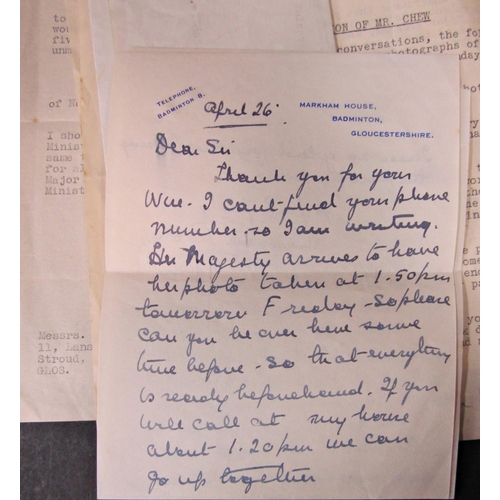 to
wou
fiv
unm
of N
I sho
Minist
same t
for al
Major
Minist
Messrs.
11, Lans
Stroud,
GLOS.
ON OF MR. CHEW
conversations, the fo
photographs of
day
TELEPHONE,
BADMINTON 8.
April 26
MARKHAM HOUSE,
BADMINTON,
GLOUCESTERSHIRE.
Dear Sir
Thank you for your
Wire. I cant find your phone
number so I am writing.
Her Majesty arrives to have
her photo taken at 1.50 pm
tomorrow Friday - so please
can you be over here some
time before - so that everything
is ready beforehand. If you
will call at my house
about 1.20 pm we can
go up together